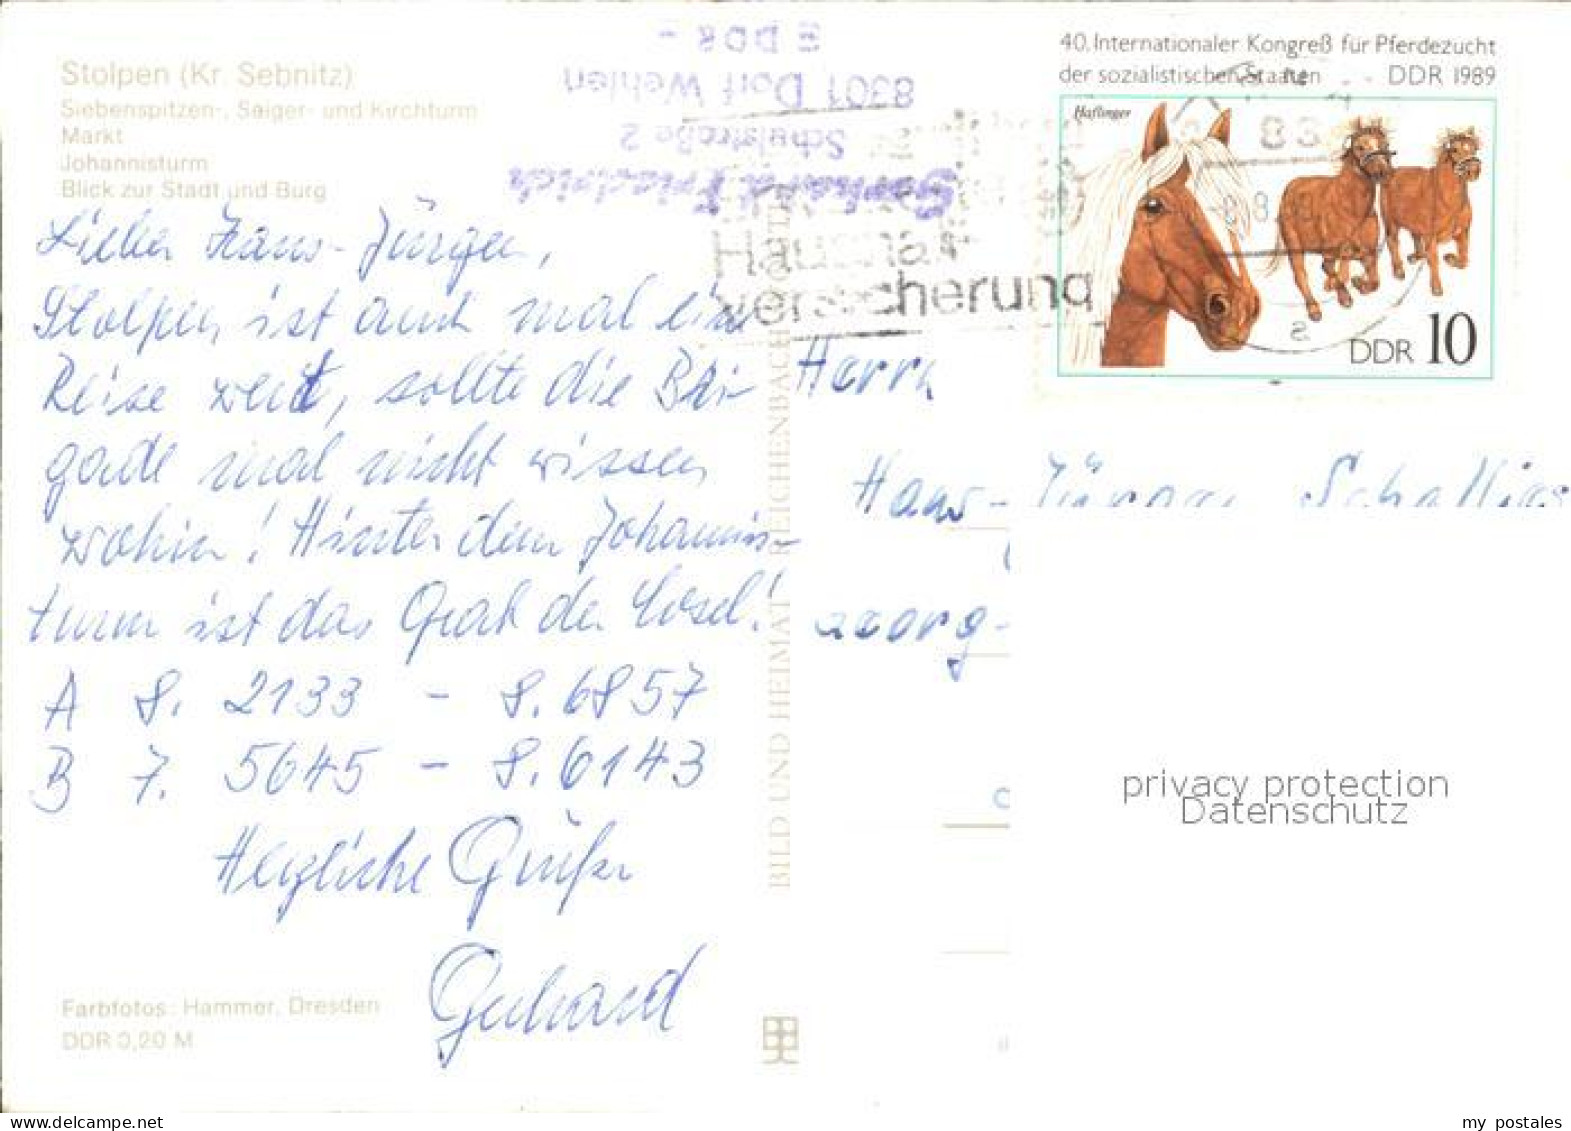 Stolpen (Kr. Sebnitz)
Siebenspitzen-, Saiger- und Kirchturm
Markt
Johannisturm
Blick zur Stadt und Burg
Lieber Hans-Jürgen,
Stolpen ist auch mal eine
Reise wert, sollte die Bri-
gade mal nicht wissen
wohin! Hinter dem Johannis-
turm ist das Grab der Cosel!
A 8. 2133 - 8. 6857
B 7. 5645 - 8. 6143
Herzliche Grüße
Gerhard
Farbfotos: Hammer, Dresden
DDR 0,20 M
BILD UND HEIMAT REICHENBACH
Gerhard Friedrich
Schulstraße 2
8301 Dorf Wehlen
- DDR -
Haushalt
versicherung
83
40. Internationaler Kongreß für Pferdezucht
der sozialistischen Staaten DDR 1989
Haflinger
DDR 10
Herrn
Hans-Jürgen
Georg-
privacy protection
Datenschutz
my postales